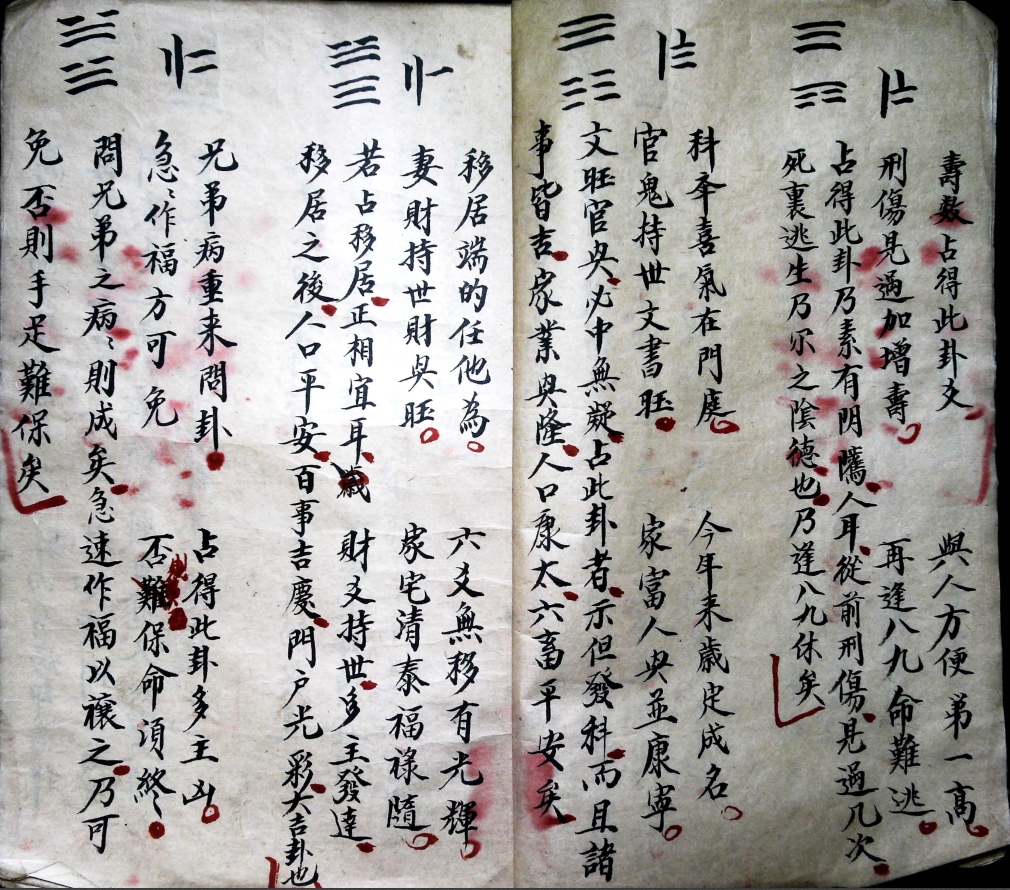 壽数占得此卦爻　與人方便第一高
刑傷見過加增壽　再逢八九命難逃
占得此卦乃素有阴隲人耳從前刑傷見過几次
死裏逃生乃尔之陰德也乃逢八九休矣
科年喜氣在門庭　今年来歲定成名
官鬼持世文書旺　家富人興並康寧
文旺官興必中無疑占此卦者不但發科而且諸
事皆吉家業興隆人口康太六畜平安矣
移居端的任他為　六爻無移有光輝
妻財持世財興旺　家宅清泰福禄隨
若占移居正相宜耳　財爻持世多主發達
移居之後人口平安百事吉慶門户光彩大吉卦也
兄弟病重来問卦　占得此卦多主凶
急急作福方可免　否難保命須終
問兄弟之病病則成矣急速作福以禳之乃可
免否則手足難保矣